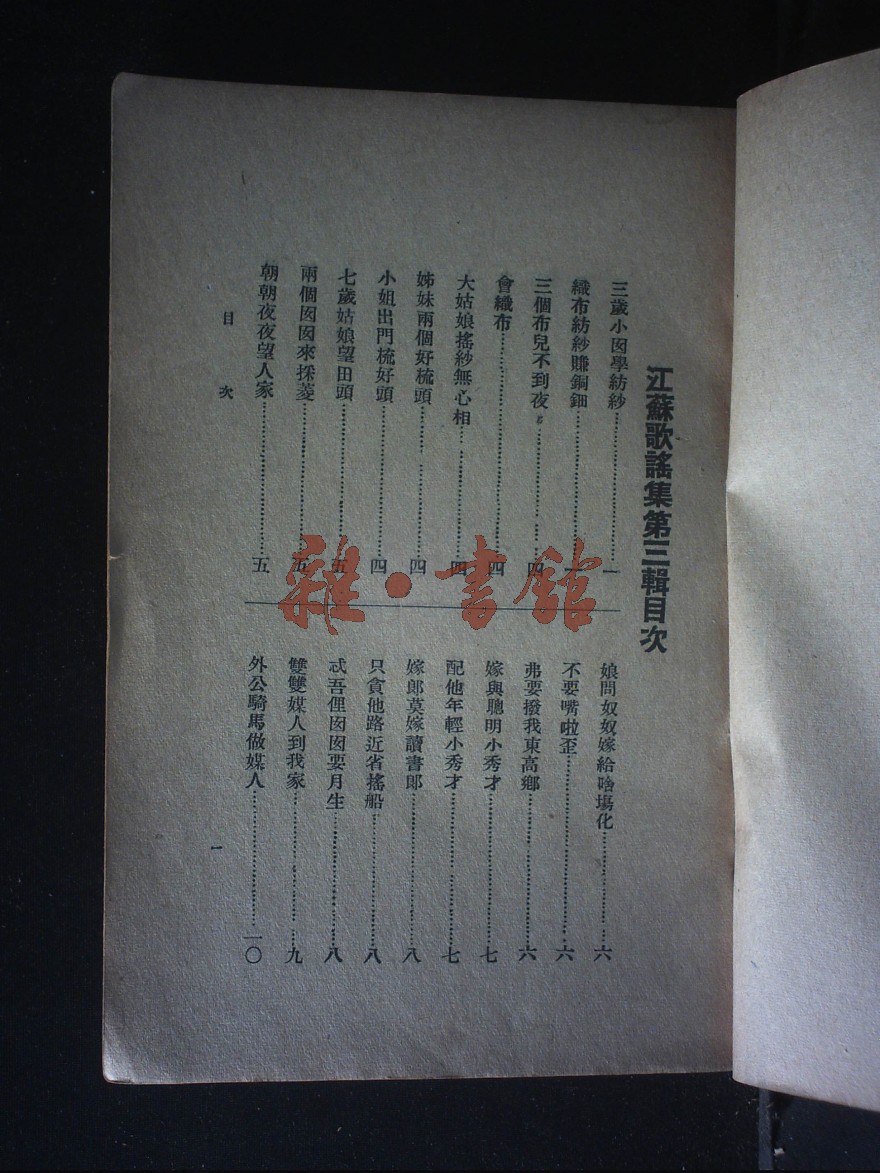 江蘇歌謠集第三輯目次
三歲小囡學紡紗……一
織布紡紗賺銅鈿……一
三個布兒不到夜……四
會織布……四
大姑娘搖紗無心相……四
姊妹兩個好梳頭……四
小姐出門梳好頭……四
七歲姑娘望田頭……五
兩個囡囡來採菱……五
朝朝夜夜望人家……五
娘問奴奴嫁給啥塲化……六
不要嘴啦歪……六
弗要撥我東高鄉……六
嫁與聰明小秀才……七
配他年輕小秀才……七
嫁郎莫嫁讀書郎……八
只貪他路近省搖船……八
忒吾俚囡囡要月生……八
雙雙媒人到我家……九
外公騎馬做媒人……一〇
目次
一
雜·書館